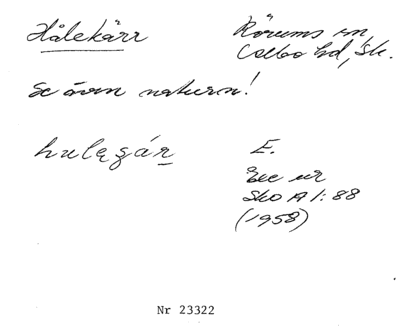 Hålekärr
Rörums sn,
Albo hd, Sk.
Se även naturn!
hulęgár
E.
Exc ur
Sko A 1:88
(1958)
Nr 23322